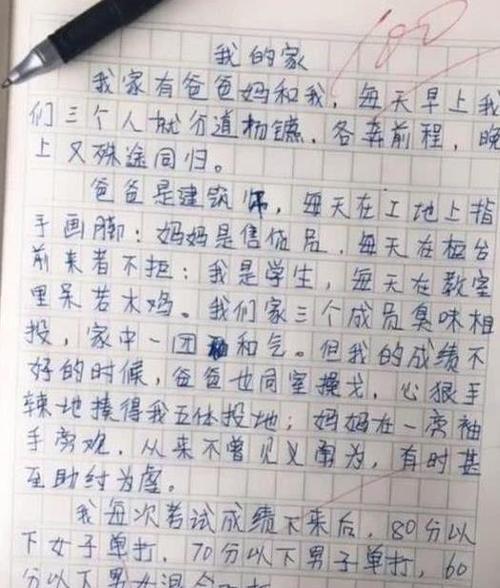 100
我的家
我家有爸爸妈和我，每天早上我
们三个人就分道扬镳，各奔前程，晚
上又殊途同归。
爸爸是建筑师，每天在工地上指
手画脚；妈妈是售货员，每天在柜台
前来者不拒；我是学生，每天在教室
里呆若木鸡。我们家三个成员臭味相
投，家中一团和气。但我的成绩不
好的时候，爸爸也同室操戈，心狠手
辣地揍得我五体投地；妈妈在一旁袖
手旁观，从来不曾见义勇为，有时甚
至助纣为虐。
我每次考试成绩下来后，80分以
下女子单打，70分以下男子单打，60
分以下男女混合双打